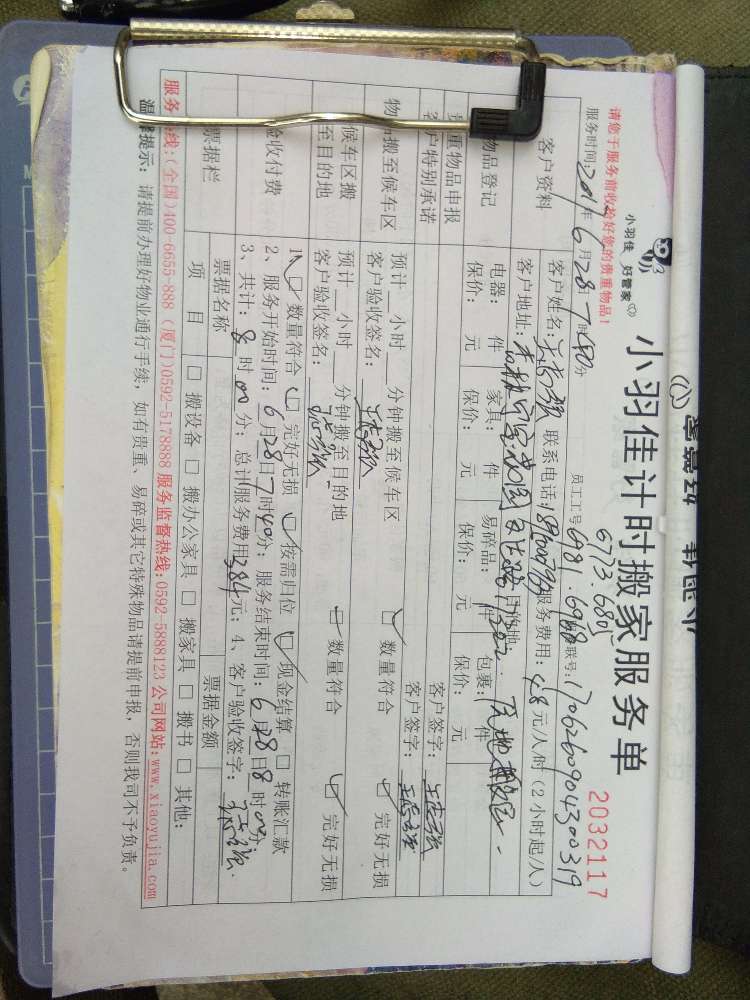 小羽佳 好管家
小羽佳计时搬家服务单
2032117
请您于服务前收拾好您的贵重物品！
员工工号 6981. 6968 联号：170626090430319
6773.680
服务时间：2017年6月28日7时40分
客户资料
客户姓名： 联系电话： 服务费用：48元/人/时（2小时起/人）
客户地址：
物品登记
电器： 件 家具： 件 易碎品： 件 包裹： 件
保价： 元 保价： 元 保价： 元 保价： 元
贵重物品申报
客户签字：
客户特别承诺
客户签字：
物品搬至候车区
预计 小时 分钟搬至候车区 数量符合 完好无损
客户验收签名：
候车区搬至目的地
预计 小时 分钟搬至目的地 数量符合 完好无损
客户验收签名：
验收付费
1、 数量符合 完好无损 按需归位 现金结算 转账汇款
2、服务开始时间：6月28日7时40分；服务结束时间：6月28日8时00分
3、共计：8时00分；总计服务费用384元；4、客户验收签字：
票据栏
票据名称 票据金额
项 目 搬设备 搬办公家具 搬家具 搬书 其他：
服务热线：（全国）400-6655-888（厦门）0592-5178888 服务监督热线：0592-5888123 公司网站：www.xiaoyujia.com
温馨提示：请提前办理好物业通行手续，如有贵重、易碎或其它特殊物品请提前申报，否则我司不予负责。